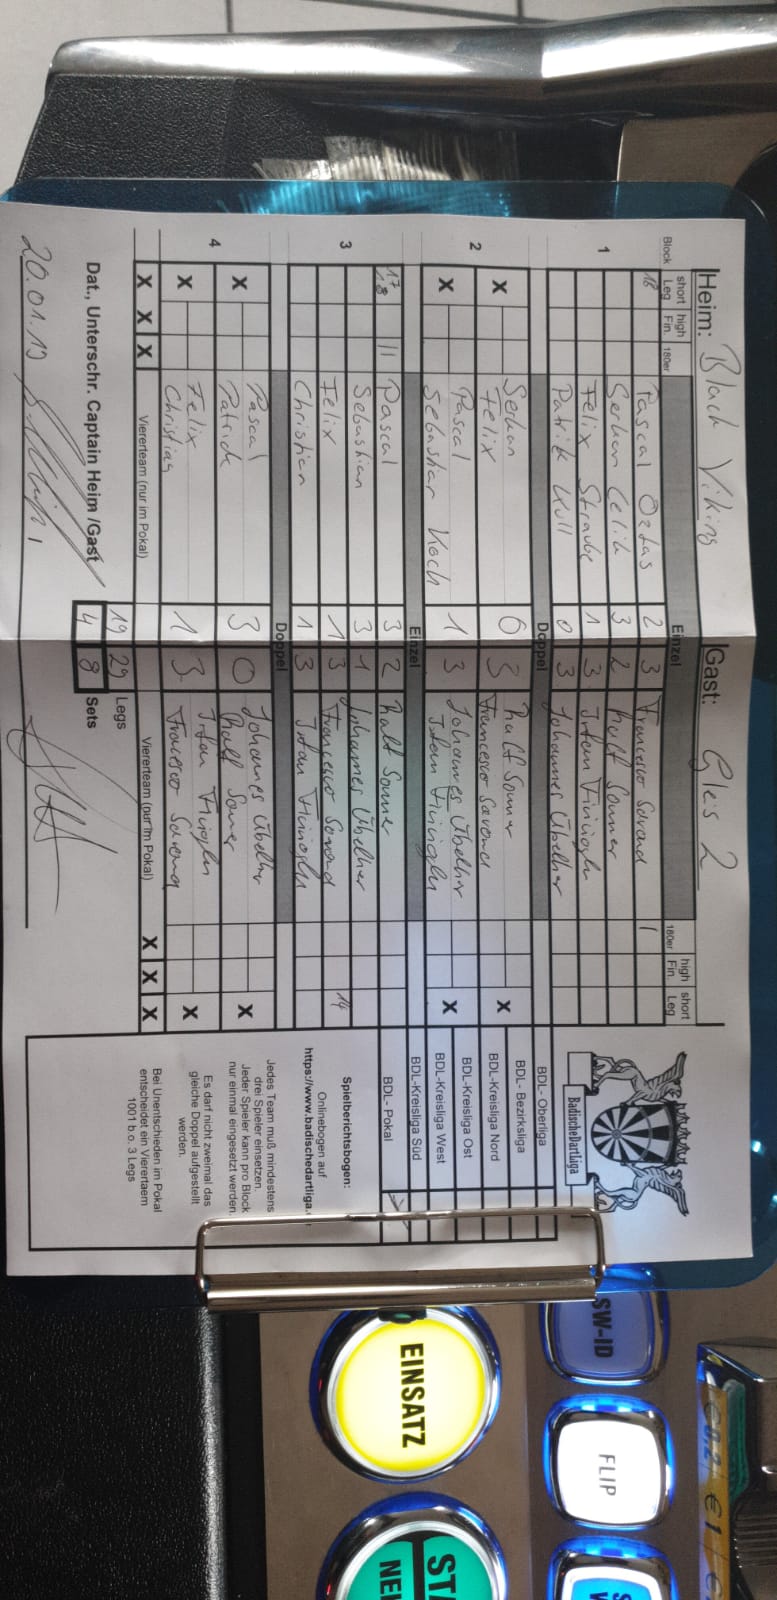 Heim: Black Viking Gast: Gleis 2
Block short Leg high Fin. 180er Einzel 180er high Fin. short Leg
1 18 Pascal Öztas 2 3 Francesco Savona 1
Serkan Celik 3 2 Ralf Sonner
Felix Straube 1 3
Patrik Kull 0 3 Johannes Übelher
Doppel
2 X Serkan Felix 0 3 Ralf Sonner Francesco Savona X
X Pascal Sebastian Koch 1 3 Johannes Übelher X
Einzel
3 17 18 II Pascal 3 2 Ralf Sonner
Sebastian 3 1 Johannes Übelher
Felix 1 3 Francesco Savona 14
Christian 1 3
Doppel
4 X Pascal Patrick 3 0 Johannes Übelher Ralf Sonner X
X Felix Christian 1 3 Francesco Savona X
X X X Viererteam (nur im Pokal) Viererteam (nur im Pokal) X X X
19 29 Legs
4 8 Sets
Dat., Unterschr. Captain Heim /Gast
20.01.19
BadischeDartLiga
BDL- Oberliga
BDL- Bezirksliga
BDL-Kreisliga Nord
BDL-Kreisliga Ost
BDL-Kreisliga West
BDL-Kreisliga Süd
BDL- Pokal
Spielberichtsbogen:
Onlinebogen auf
https://www.badischedartliga.
Jedes Team muß mindestens
drei Spieler einsetzen.
Jeder Spieler kann pro Block
nur einmal eingesetzt werden.
Es darf nicht zweimal das
gleiche Doppel aufgestellt
werden.
Bei Unentschieden im Pokal
entscheidet ein Vierertaem
1001 b.o. 3 Legs
SW-ID
FLIP
EINSATZ
€ 1